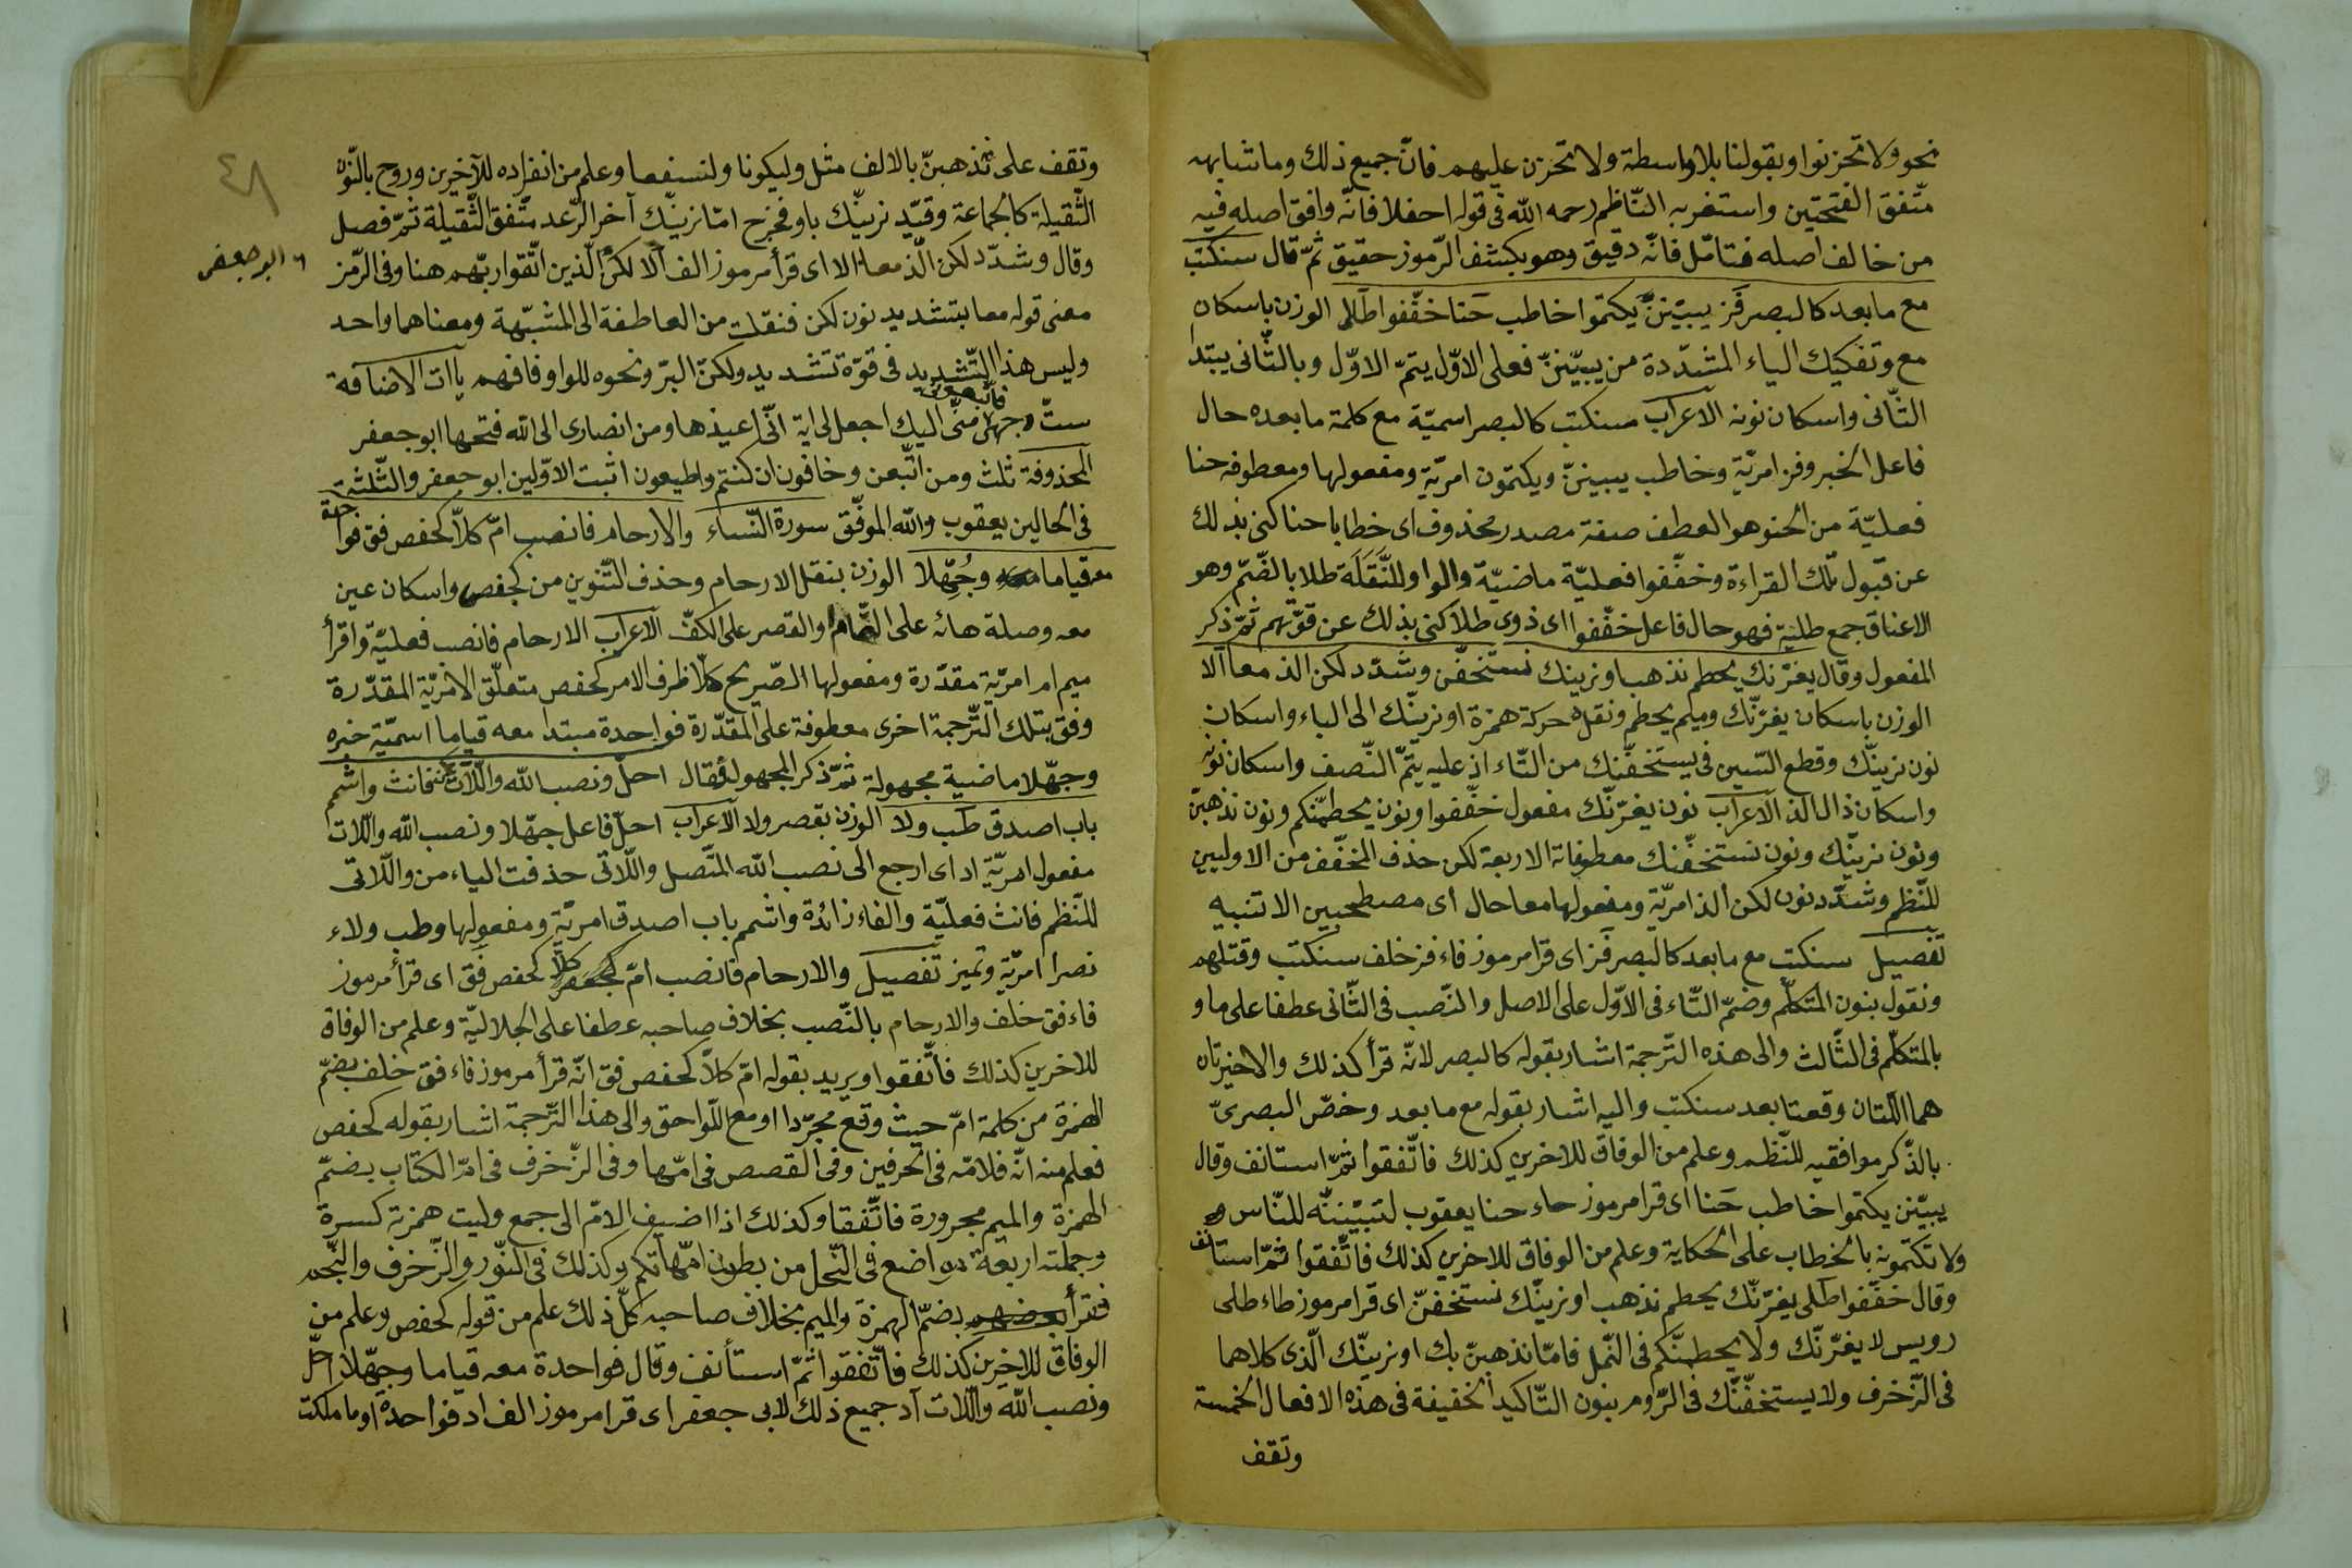 نحو ولا تحزنوا وبقولنا بلا واسطة ولا تحزن عليهم فانّ جميع ذلك وما شابهه
متّفق الفتحتين واستغربه النّاظم رحمه الله فى قوله احفلا فانّه وافق اصله فيه
من خالف اصله فتامّل فانّه دقيق وهو بكشف الرّموز حقيق ثمّ قال سنكتب
مع ما بعد كالبصر فز يبيّننّ يكتموا خاطب حَنا خفّفوا طلا الوزن باسكان
مع وتفكيك الياء المشدّدة من يبيّننّ فعلى الاوّل يتمّ الاوّل وبالثّانى يبتدا
الثّانى واسكان نونه الاعراب سنكتب كالبصر اسميّة مع كلمة ما بعده حال
فاعل الخبر وفز امريّة وخاطب يبيننّ ويكتمون امريّة ومفعولها ومعطوفه حنا
فعليّة من الحنو هو العطف صفة مصدر محذوف اى خطابا حنا كنى بذلك
عن قبول تلك القراءة وخفّفوا فعليّة ماضيّة والواو للنَّقَلَة طلا بالضّمّ وهو
الاعناق جمع طلية فهو حال فاعل خفّفوا اى ذوى طلا كنى بذلك عن قوّتهم ثمّ ذكر
المفعول وقال يغرّنك يحطم نذهب او نرينك نستخفّن وشدّد لكن الذ معا الا
الوزن باسكان يغرّنّك وميم يحطم ونقل حركة همزة او نرينّك الى الباء واسكان
نون نرينّك وقطع السّين فى يستَخفّنّك من التّاء اذ عليه يتمّ النّصف واسكان نونه
واسكان ذال الذ الاعراب نون يغرّنّك مفعول خفّفوا ونون يحطمنّكم ونون نذهبنّ
ونون نرينّك ونون نستخفّنك معطوفاته الاربعة لكن حذف المخفّف من الاوليين
للنّظم وشدّد نون لكن الذ امريّة ومفعولها معا حال اى مصطحبين الا تنبيه
تفصيل سنكتب مع ما بعد كالبصر فَز اى قرا مرموز فاء فز خلف سنكتب وقتلهم
ونقول بنون المتكلّم وضمّ التّاء فى الاوّل على الاصل والنّصب فى الثّانى عطفا على ما و
بالمتكلّم فى الثّالث والى هذه التّرجمة اشار بقوله كالبصر لانّه قرأ كذلك والاخيرتان
هما اللّتان وقعتا بعد سنكتب واليه اشار بقوله مع ما بعد وخصّ البصرىّ
بالذّكر موافقيه للنّظم وعلم من الوفاق للاخرين كذلك فاتّفقوا ثمّ استانف وقال
يبيّنن يكتموا خاطب حَنا اى قرا مرموز حاء حنا يعقوب لتبيّننّه للنّاس
ولا تكتمونه بالخطاب على الحكاية وعلم من الوفاق للاخرين كذلك فاتّفقوا ثمّ استانف
وقال خفّفوا طلى يغرّنّك يحطم نذهب او نرينّك نستخفنّ اى قرا مرموز طاء طلى
رويس لا يغرّنّك ولا يحطمنّكم فى النّمل فامّا نذهبنّ بك او نرينّك الّذى كلاهما
فى الزّخرف ولا يستخفّنّك فى الرّوم بنون التّاكيد الخفيفة فى هذه الافعال الخمسة
وتقف
٤٨
وتقف على نذهبنّ بالالف مثل وليكونا ولنسفعا وعلم من انفراده للآخرين وروح بالنّون
الثّقيلة كالجماعة وقيّد نرينّك باو فخرج امّا نرينّك آخر الرّعد متّفق الثّقيلة ثمّ فصل
وقال وشدّد لكن الّذ معا الا اى قرأ مرموز الف الا لكنّ الّذين اتّقوا ربّهم هنا وفى الزّمر
ابو جعفر
معنى قوله معا بتشديد نون لكن فنقلت من العاطفة الى المشبّهة ومعناهما واحد
وليس هذا التّشديد فى قوّة تشديد ولكنّ البرّ ونحوه للواو فافهم ياآت الاضافة
ستّ وجهى منّى اليك اجعل لى اية انّى اعيذها ومن انصارى الى الله فتحها ابو جعفر
المحذوفة ثلث ومن اتّبعن وخافون ان كنتم واطيعون اثبت الاوّلين ابو جعفر والثّلثة
فى الحالين يعقوب والله الموفّق سورة النّساء والارحام فانصب امّ كلاّ كحفص فق فواحدة
معه قياما وجُهّلا الوزن بنقل الارحام وحذف التّنوين من كحفص واسكان عين
معه وصلة هائه على التّمام والقصر على الكفّ الاعراب الارحام فانصب فعليّة واقرأ
ميم ام امريّة مقدّرة ومفعولها الصّريح كلاّ ظرف الامر كحفص متعلّق الامريّة المقدّرة
وفق بتلك التّرجمة اخرى معطوفة على المقدّرة فواحدة مبتدا معه قياما اسميّة خبره
وجهّلا ماضية مجهولة ثمّ ذكر المجهول فقال احلّ ونصب الله واللّات فانث واشمم
باب اصدق طب ولا الوزن بقصر ولا الاعراب احلّ فاعل جهّلا ونصب الله واللّات
مفعول امريّة اد اى ارجع الى نصب الله المتّصل واللّاتى حذفت الياء من واللّاتى
للنّظم فانث فعليّة والفاء زائدة واشمم باب اصدق امريّة ومفعولها وطب ولاء
نصرا امريّة وتميز تفصيل والارحام فانصب امّ كلاّ كحفص فَق اى قرأ مرموز
فاء فق خلف والارحام بالنّصب بخلاف صاحبه عطفا على الجلاليّة وعلم من الوفاق
للاخرين كذلك فاتّفقوا ويريد بقوله امّ كلاّ كحفص فق انّه قرأ مرموز فاء فق خلف بضمّ
الهمزة من كلمة امّ حيث وقع مجرّدا او مع اللّواحق والى هذا التّرجمة اشار بقوله كحفص
فعلم منه انّه فلامّه فى الحرفين وفى القصص فى امّها وفى الزّخرف فى امّ الكتاب بضمّ
الهمزة والميم مجرورة فاتّفقا وكذلك اذا اضيف الامّ الى جمع وليت همزته كسرة
وجملته اربعة مواضع فى النّحل من بطون امّهاتكم وكذلك فى النّور والزّخرف والنّجم
فقرأ بضمّ الهمزة والميم بخلاف صاحبه كلّ ذلك علم من قوله كحفص وعلم من
الوفاق للاخرين كذلك فاتّفقوا ثمّ استأنف وقال فواحدة معه قياما وجهّلا احلّ
ونصب الله واللّات اد جميع ذلك لابى جعفر اى قرا مرموز الف اد فواحدة او ما ملكت